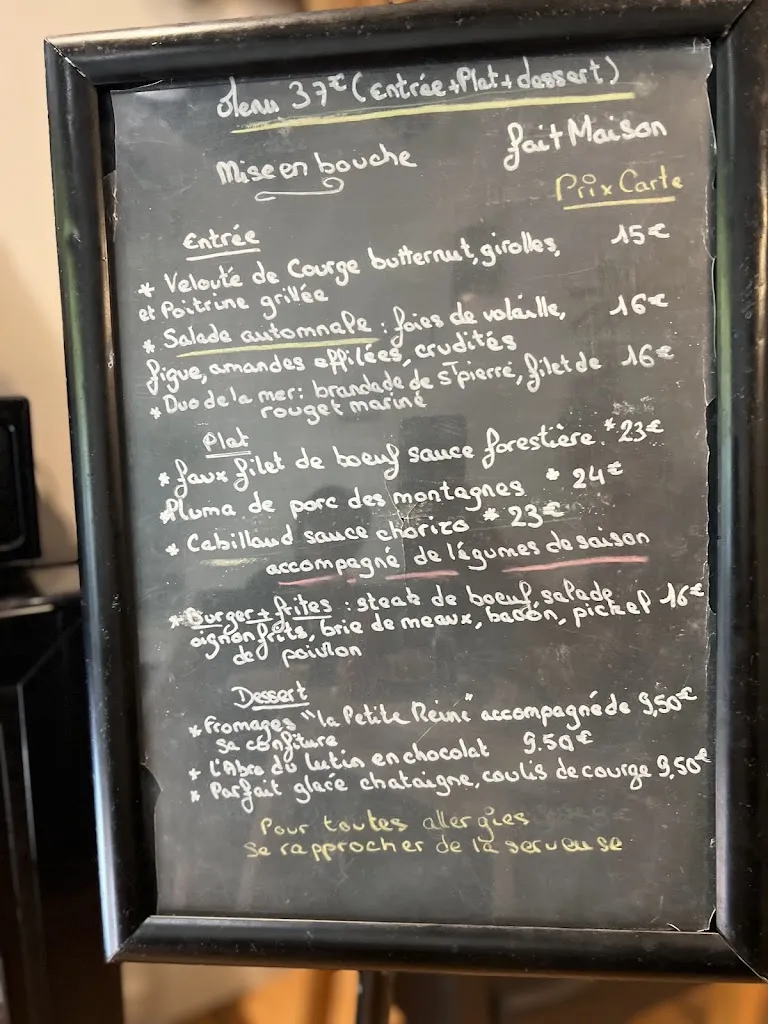 Menu 37€ (Entrée+Plat+dessert)
fait Maison
Mise en bouche
Prix Carte
Entrée
* Velouté de Courge butternut, girolles, 15€
et Poitrine grillée
* Salade automnale : foies de volaille, 16€
figue, amandes effilées, crudités
* Duo de la mer: brandade de St pierre, filet de 16€
rouget mariné
Plat
* faux filet de boeuf sauce forestière * 23€
* Pluma de porc des montagnes * 24€
* Cabillaud sauce chorizo * 23€
accompagné de légumes de saison
* Burger + frites : steak de boeuf, salade,
oignon frits, brie de meaux, bacon, pickel 16€
de poivron
Dessert
* Fromages "la Petite Reine" accompagné de 9,50€
sa confiture
* L'Abro du lutin en chocolat 9.50€
* Parfait glacé chataigne, coulis de courge 9,50€
Pour toutes allergies
Se rapprocher de la serveuse